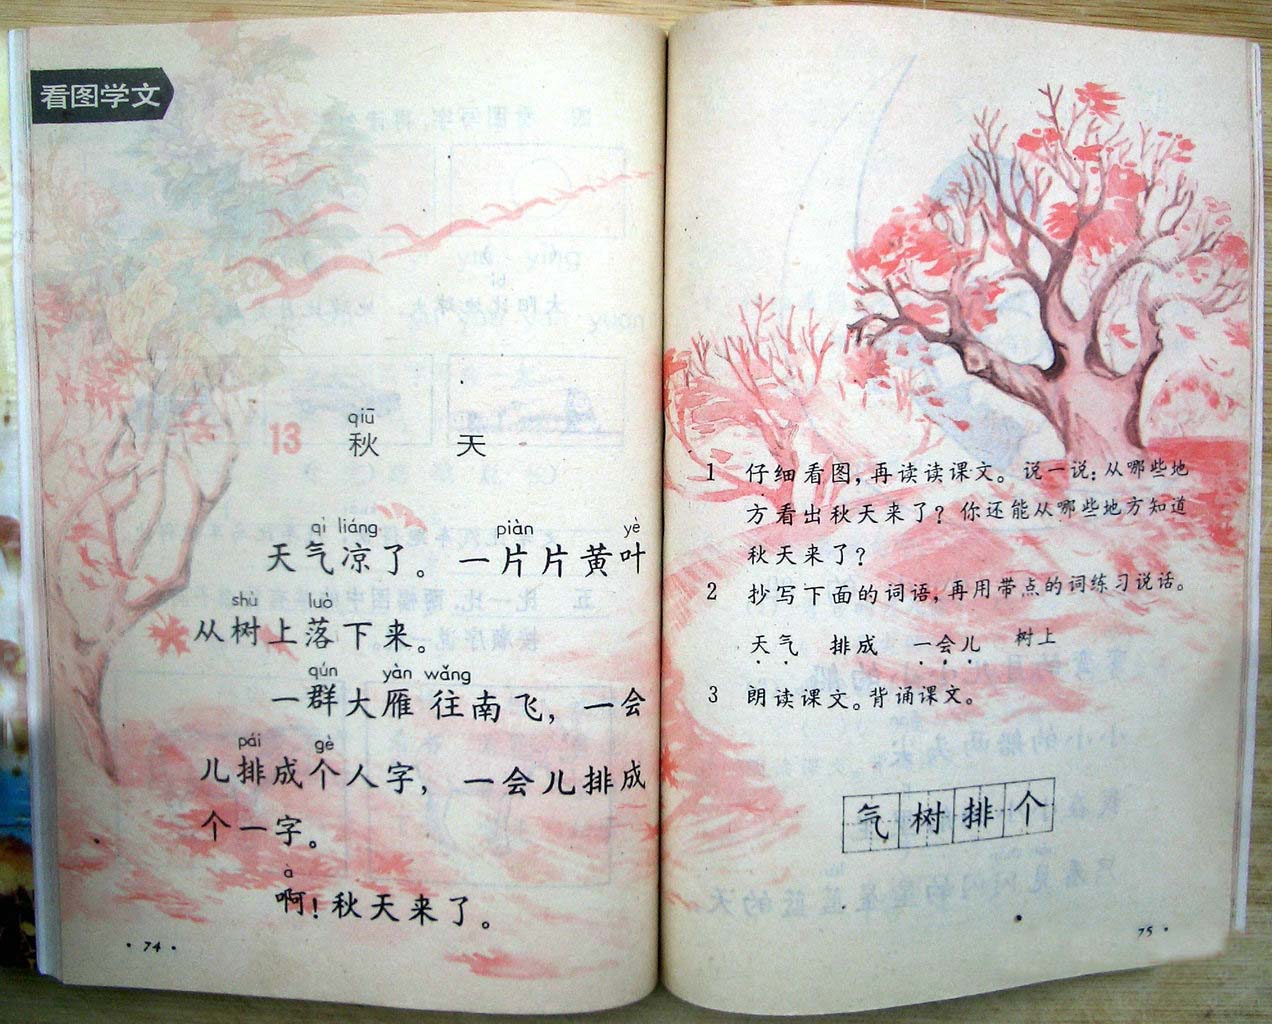 看图学文
qiū
13 秋 天
qì liáng piàn yè
天气凉了。一片片黄叶
shù luò
从树上落下来。
qún yàn wǎng
一群大雁往南飞，一会
pái gè
儿排成个人字，一会儿排成
个一字。
à
啊！秋天来了。
·74·
1 仔细看图，再读读课文。说一说：从哪些地
方看出秋天来了？你还能从哪些地方知道
秋天来了？
2 抄写下面的词语，再用带点的词练习说话。
天气 排成 一会儿 树上
3 朗读课文。背诵课文。
气树排个
75·